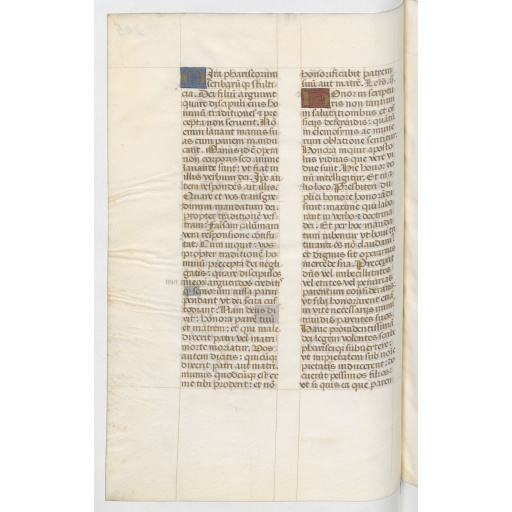 Ira phariseorum
scribarūq; stulti-
cia. Dei filiū arguunt
quare discipuli eius ho
minū traditiones & pre
cepta non seruent. Nō
enim lauant manus su
as cum panem mandu
cant. Manus id ē opera
non corporis sed anime
lauande sunt: ut fiat in
illis verbum dei. Ipe au
tem respondēs ait illis.
Quare et vos transgre
dimini mandatum dei.
propter traditionē ves-
tram? Falsam calūniam
vera responsione confu
tat. Cum inquit: vos
propter traditionē ho
minum precepta dei negli
gatis: quare discipulos
meos arguendos creditis
q seniorum iussa parui
pendant ut dei scita cus
todiant? Nam deus di
xit: honora patrē tuū
et matrem: et qui male
dixerit patri vel matri
morte moriatur. Vos
autem dicitis: quicūq;
dixerit patri aut matri.
munus quodcūq; est ex
me tibi proderit: et nō
honorificabit patrem
suū aut matrē.
Honor in scriptu
ris non tantum
in salutationibus et of
ficijs deferendis: quātū
in elemosinis ac mune
rum oblatione sentitur.
Honora inquit aposto-
lus viduas que vere vi
due sunt. Hic honor do
nū intelligitur. Et in a
lio loco. Presbiteri du-
plici honore honorādi
sunt: maxime qui labo
rant in verbo & doctrina
dei. Et per hoc manda-
tum iubemur ut boui tri
turanti os nō claudam
et dignus sit operarius
mercede sua. Precepit
dn̄s vel imbecillitates
vel etates vel penurias
parentum considerans:
ut filij honorarent etiā
in vite necessarijs minis
trandis parentes suos.
Hanc prouidentissimā
dei legem volentes scribe
phariseiq; subuertere:
ut impietatem sub noīe
pietatis inducerent: do
cuerūt pessimos filios:
ut si quis ea que paren